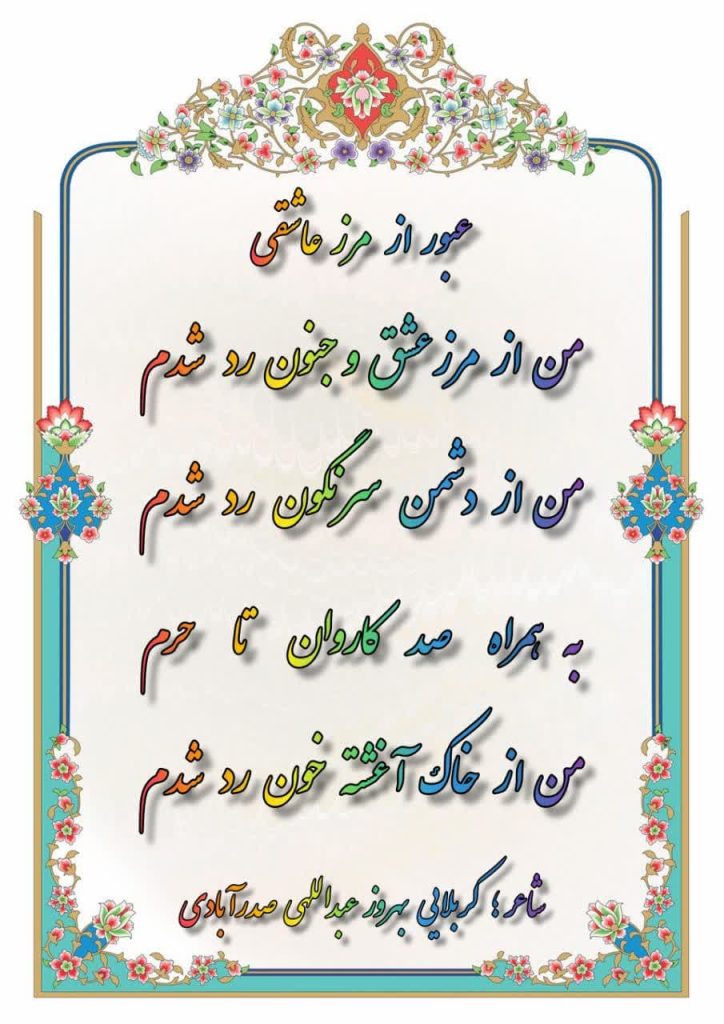 عبور از مرز عاشقی
من از مرز عشق و جنون رد شدم
من از دشمن سرنگون رد شدم
به همراه صد کاروان تا حرم
من از خاک آغشته خون رد شدم
شاعر ؛ کربلایی بهروز عبداللهی صدرآبادی